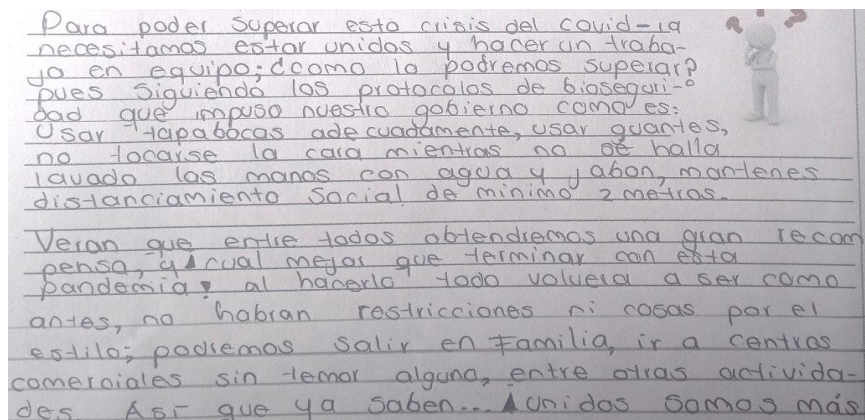 Para poder superar esta crisis del covid-19
necesitamos estar unidos y hacer un traba-
jo en equipo; ¿como la podremos superar?
pues siguiendo los protocolos de bioseguri-
dad que impuso nuestro gobierno como es:
Usar tapabocas adecuadamente, usar guantes,
no tocarse la cara mientras no se halla
lavado las manos con agua y jabon, mantenes
distanciamiento social de minimo 2 metros.
Veran que entre todos obtendremos una gran recom
pensa, y cual mejor que terminar con esta
pandemia, al hacerlo todo volvera a ser como
antes, no habran restricciones ni cosas por el
estilo; podremos salir en Familia, ir a centros
comerciales sin temor alguno, entre otras activida-
des. Asi que ya saben... ¡Unidos somos más